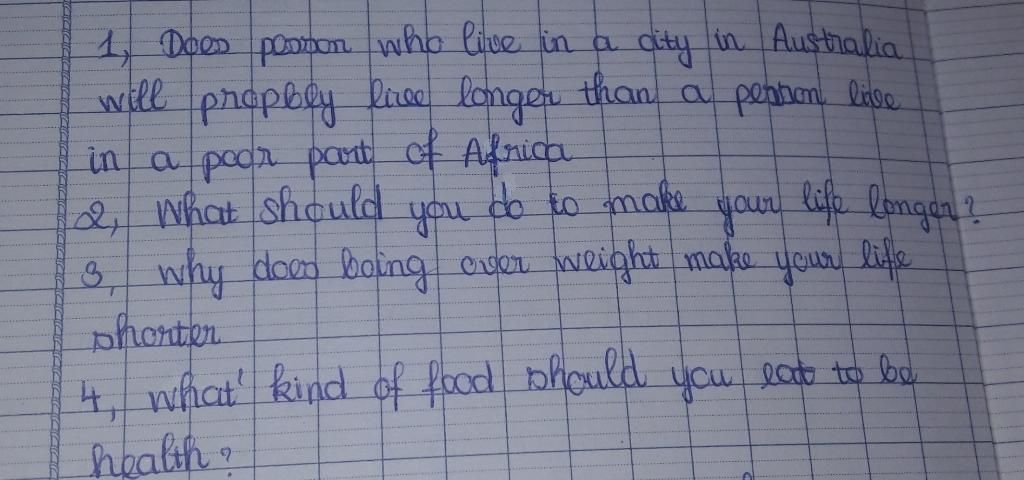 1, Does person who live in a city in Australia
will propbly live longer than a person live
in a poor part of Africa
2, What should you do to make your life longer?
3, why does being over weight make your life
shorter
4, what' kind of food should you eat to be
health?